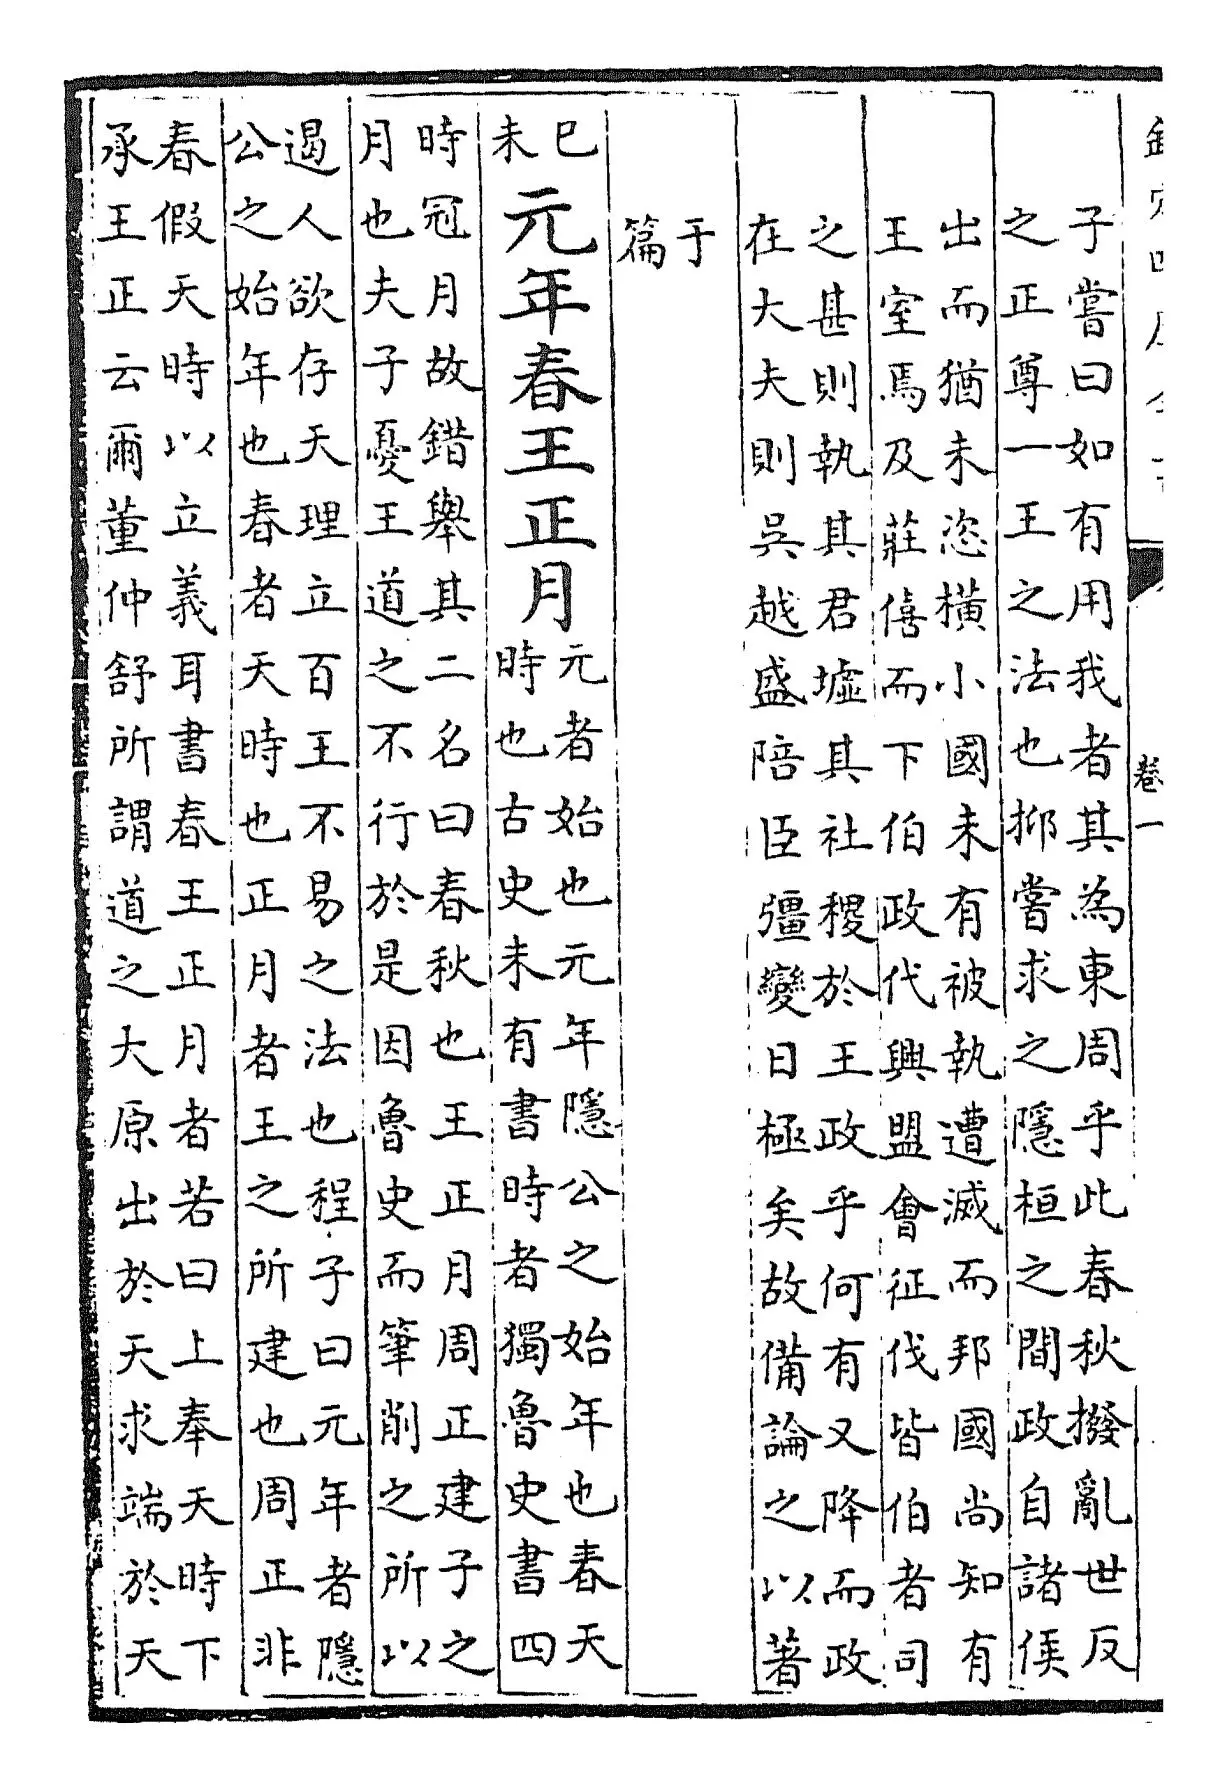 卷一
子嘗曰如有用我者其為東周乎此春秋撥亂世反
之正尊一王之法也抑嘗求之隱桓之間政自諸侯
出而猶未恣橫小國未有被執遭滅而邦國尚知有
王室焉及莊僖而下伯政代興盟會征伐皆伯者司
之甚則執其君墟其社稷於王政乎何有又降而政
在大夫則吳越盛陪臣彊變日極矣故備論之以著
于
篇
己
未
元年春王正月
元者始也元年隱公之始年也春天
時也古史未有書時者獨魯史書四
時冠月故錯舉其二名曰春秋也王正月周正建子之
月也夫子憂王道之不行於是因魯史而筆削之所以
遏人欲存天理立百王不易之法也程子曰元年者隱
公之始年也春者天時也正月者王之所建也周正非
春假天時以立義耳書春王正月者若曰上奉天時下
承王正云爾董仲舒所謂道之大原出於天求端於天